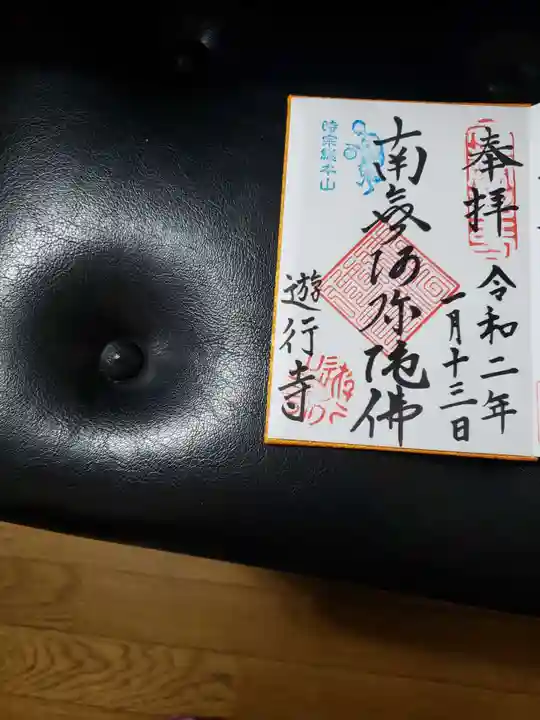 奉拝
令和二年
一月十三日
南無阿弥陀佛
時宗総本山
遊行寺